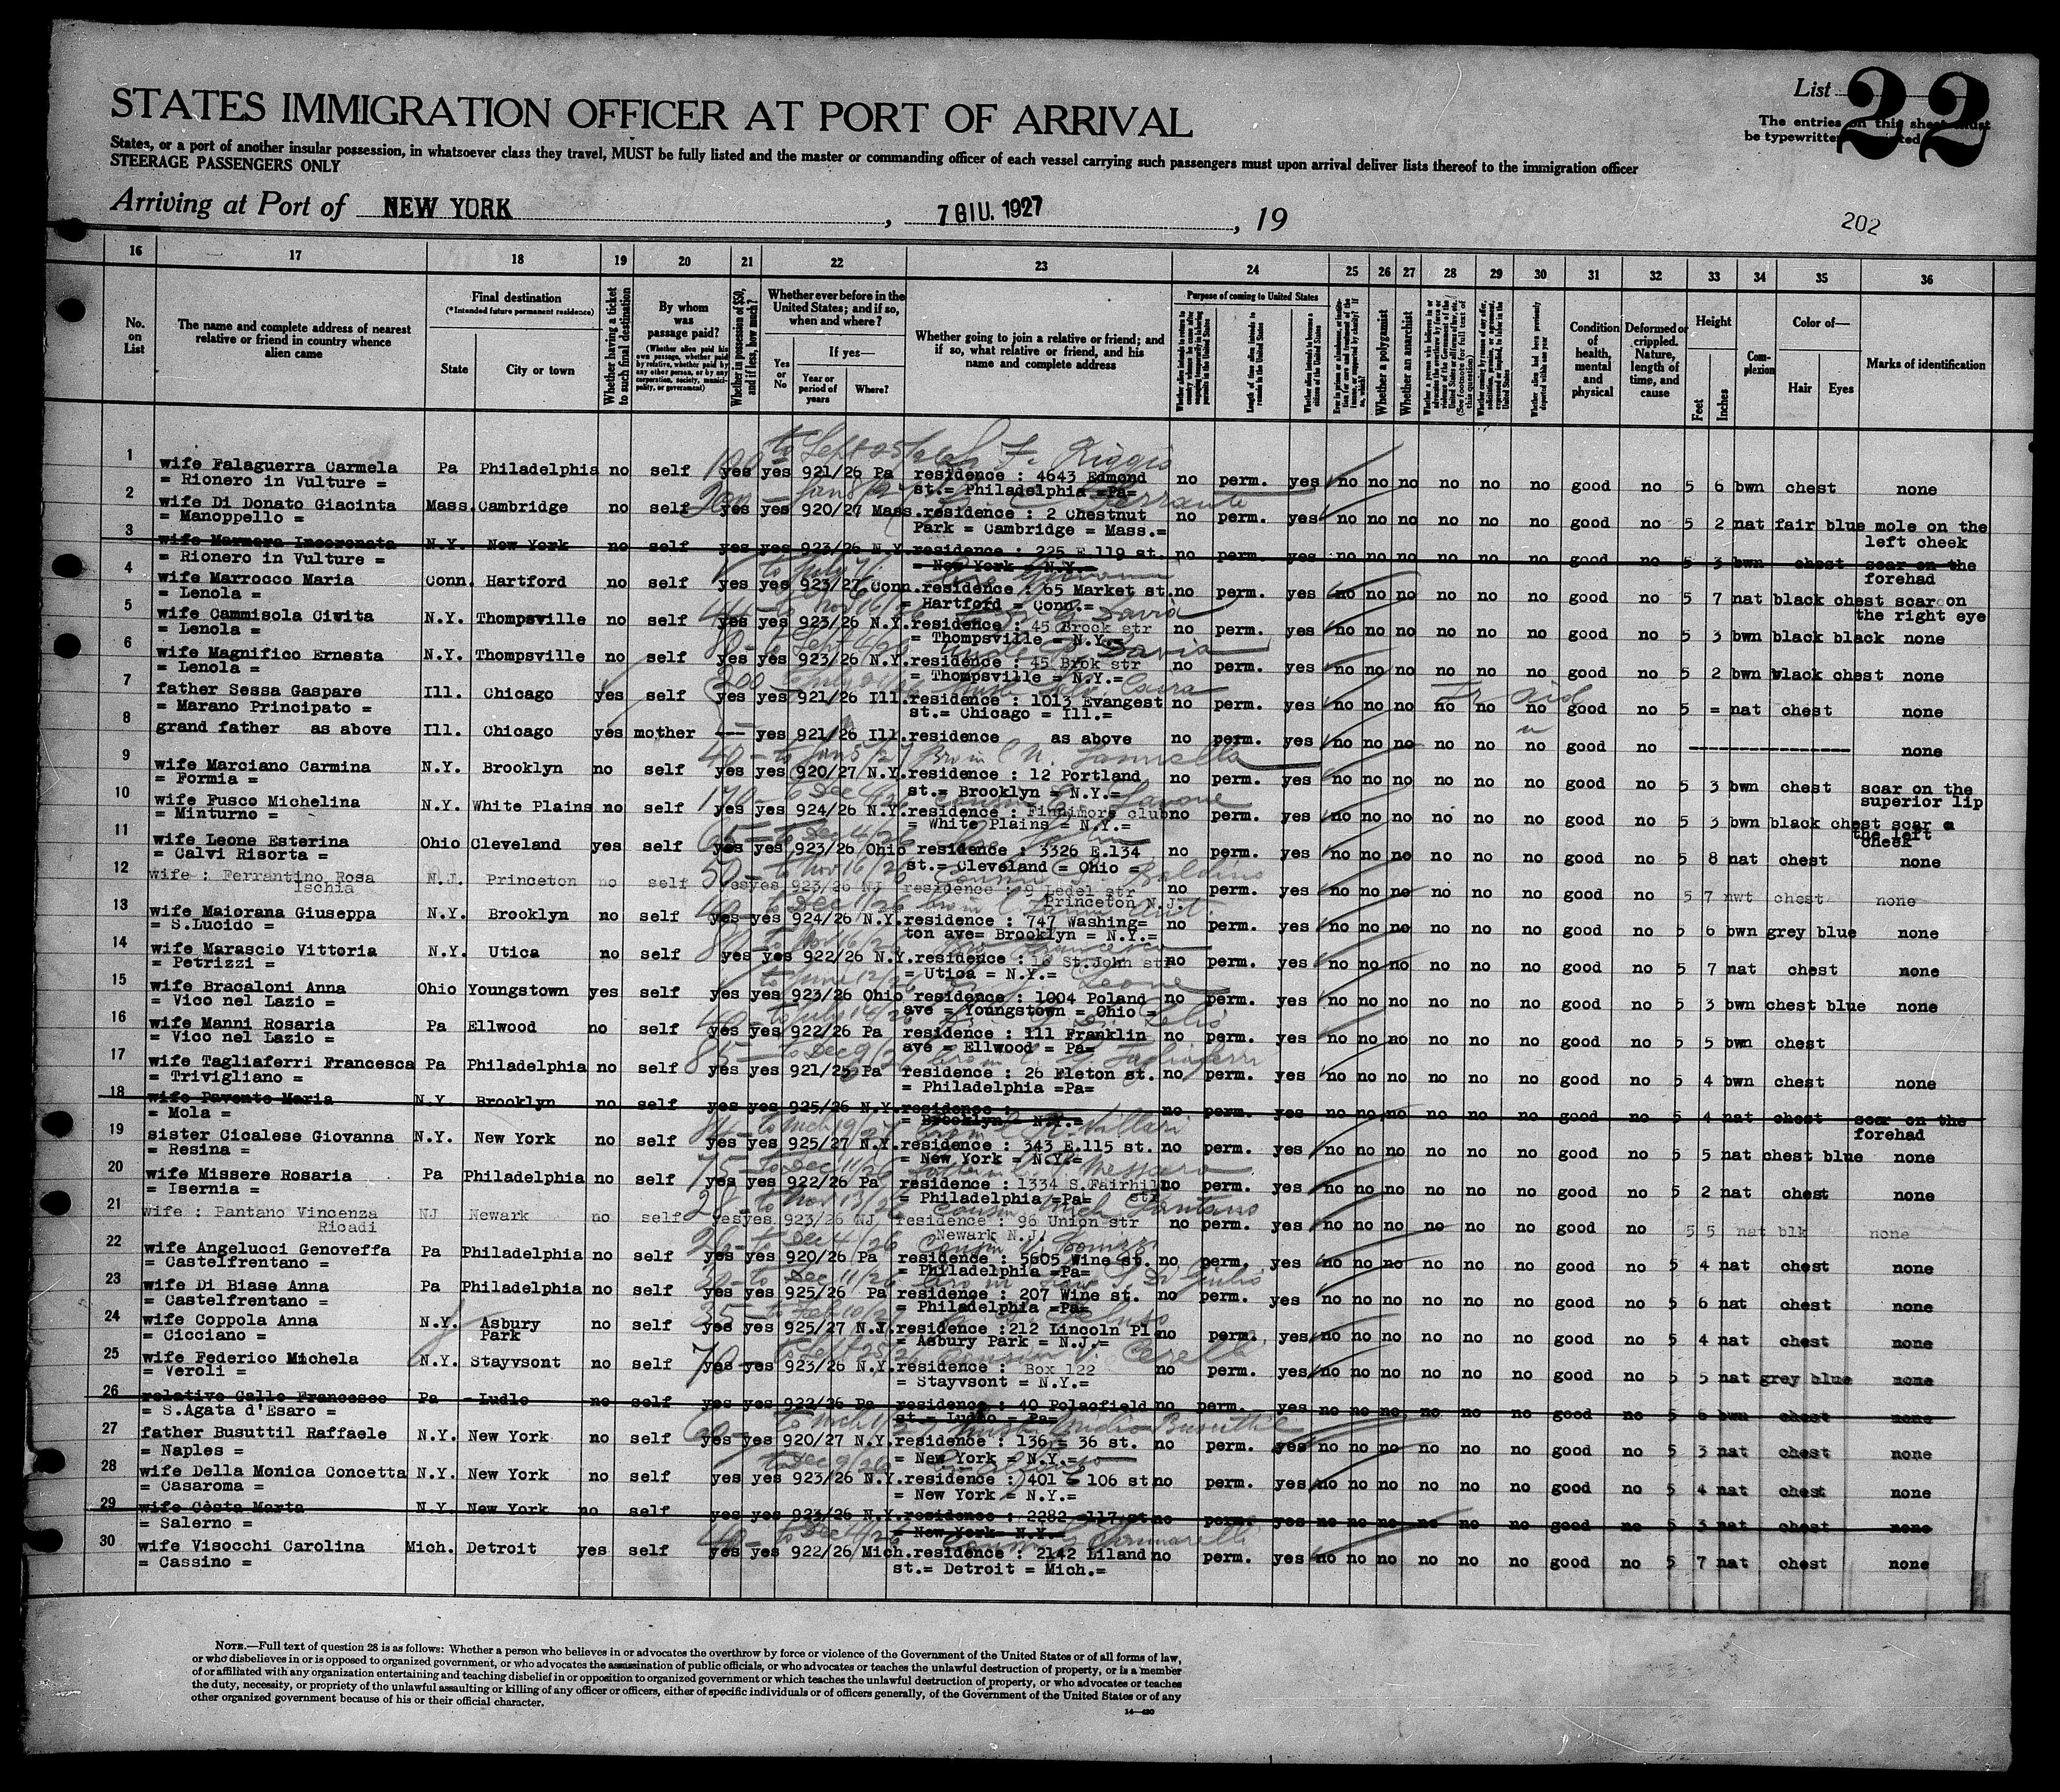 List 22
STATES IMMIGRATION OFFICER AT PORT OF ARRIVAL
The entries on this sheet must
be typewritten
States, or a port of another insular possession, in whatsoever class they travel, MUST be fully listed and the master or commanding officer of each vessel carrying such passengers must upon arrival deliver lists thereof to the immigration officer
STEERAGE PASSENGERS ONLY
Arriving at Port of NEW YORK, 7 GIU. 1927, 19
202
16 17 18 19 20 21 22 23 24 25 26 27 28 29 30 31 32 33 34 35 36
No. on List
The name and complete address of nearest relative or friend in country whence alien came
Final destination
(*Intended future permanent residence)
State City or town
Whether having a ticket to such final destination
By whom was passage paid?
(Whether alien paid his own passage, whether paid by relative, whether paid by any other person, or by any corporation, society, municipality, or government)
Whether in possession of $50, and if less, how much?
Whether ever before in the United States; and if so, when and where?
Yes or No
If yes—
Year or period of years Where?
Whether going to join a relative or friend; and if so, what relative or friend, and his name and complete address
Purpose of coming to United States
Length of time alien intends to remain in the United States
Whether a polygamist
Whether an anarchist
Condition of health, mental and physical
Deformed or crippled. Nature, length of time, and cause
Height
Feet Inches
Complexion
Color of—
Hair Eyes
Marks of identification
1 wife Falaguerra Carmela Pa Philadelphia no self 100 yes yes 921/26 Pa residence : 4643 Edmond no perm. yes no no no no no no good no 5 6 bwn chest none
= Rionero in Vulture = st.= Philadelphia =Pa=
2 wife Di Donato Giacinta Mass. Cambridge no self yes yes 920/27 Mass. residence : 2 Chestnut no perm. yes no no no no no no good no 5 2 nat fair blue mole on the
= Manoppello = Park = Cambridge = Mass.= left cheek
3 wife Marmora Incoronata N.Y. New York no self yes yes 923/26 N.Y. residence : 225 E.119 st. no perm yes no no no no no no good no 5 3 bwn chest scar on the
= Rionero in Vulture = = New York = N.Y.= forehad
4 wife Marrocco Maria Conn. Hartford no self yes yes 923/27 Conn. residence : 65 Market st. no perm. yes no no no no no no good no 5 7 nat black chest scar on
= Lenola = = Hartford = Conn.= the right eye
5 wife Cammisola Civita N.Y. Thompsville no self yes yes 923/26 N.Y. residence : 45 Brook str no perm. yes no no no no no no good no 5 3 bwn black black none
= Lenola = = Thompsville = N.Y.=
6 wife Magnifico Ernesta N.Y. Thompsville no self yes yes 923/26 N.Y. residence : 45 Brok str no perm. yes no no no no no no good no 5 2 bwn black chest none
= Lenola = = Thompsville = N.Y.=
7 father Sessa Gaspare Ill. Chicago yes self yes yes 921/26 Ill. residence : 1013 Evangest no perm. yes no no no no no no good no 5 = nat chest none
= Marano Principato = st.= Chicago = Ill.=
8 grand father as above Ill. Chicago yes mother --- yes 921/26 Ill. residence as above no perm. yes no no no no no no good no ------------------ none
9 wife Marciano Carmina N.Y. Brooklyn no self yes yes 920/27 N.Y. residence : 12 Portland no perm. yes no no no no no no good no 5 3 bwn chest scar on the
= Formia = st.= Brooklyn = N.Y.= superior lip
10 wife Fusco Michelina N.Y. White Plains no self yes yes 924/26 N.Y. residence : Finnimore club no perm. yes no no no no no no good no 5 3 bwn black chest scar a
= Minturno = = White Plains = N.Y.= the left cheek
11 wife Leone Esterina Ohio Cleveland yes self 65 yes yes 923/26 Ohio residence : 3326 E.134 no perm. yes no no no no no no good no 5 8 nat chest none
= Calvi Risorta = st.= Cleveland = Ohio =
12 wife : Ferrantino Rosa N.J. Princeton no self 50 yes yes 923/26 NJ residence : 9 Ledel str no perm. yes no no no no no no good no 5 7 nwt chest none
Ischia Princeton N.J.
13 wife Maiorana Giuseppa N.Y. Brooklyn no self yes yes 924/26 N.Y. residence : 747 Washing= no perm. yes no no no no no no good no 5 6 bwn grey blue none
= S.Lucido = ton ave= Brooklyn = N.Y.=
14 wife Marascio Vittoria N.Y. Utica no self yes yes 922/26 N.Y. residence : 16 St.John str no perm. yes no no no no no no good no 5 7 nat chest none
= Petrizzi = = Utica = N.Y.=
15 wife Bracaloni Anna Ohio Youngstown yes self yes yes 923/26 Ohio residence : 1004 Poland no perm. yes no no no no no no good no 5 3 bwn chest blue none
= Vico nel Lazio = ave = Youngstown = Ohio =
16 wife Manni Rosaria Pa Ellwood no self yes yes 922/26 Pa residence : 111 Franklin no perm. yes no no no no no no good no 5 5 bwn chest
= Vico nel Lazio = ave = Ellwood = Pa=
17 wife Tagliaferri Francesca Pa Philadelphia no self 85 yes yes 921/25 Pa residence : 26 Eleton st. no perm. yes no no no no no no good no 5 4 bwn chest none
= Trivigliano = = Philadelphia =Pa=
18 wife Pavento Maria N.Y. Brooklyn no self yes yes 925/26 N.Y. residence : no perm. yes no no no no no no good no 5 4 nat chest scar on the
= Mola = = Brooklyn = N.Y.= forehad
19 sister Cicalese Giovanna N.Y. New York no self yes yes 925/27 N.Y. residence : 343 E.115 st. no perm. yes no no no no no no good no 5 5 nat chest blue none
= Resina = = New York = N.Y.=
20 wife Missere Rosaria Pa Philadelphia no self 75 yes yes 922/26 Pa residence : 1334 S.Fairhill no perm. yes no no no no no no good no 5 2 nat chest none
= Isernia = = Philadelphia =Pa= str
21 wife : Pantano Vincenza NJ Newark no self 28 yes yes 923/26 NJ residence : 96 Union str no perm. yes no no no no no no good no 5 5 nat blk none
Ricadi Newark N.J.
22 wife Angelucci Genoveffa Pa Philadelphia no self yes yes 920/26 Pa residence : 5605 Wine st. no perm. yes no no no no no no good no 5 4 nat chest none
= Castelfrentano = = Philadelphia =Pa=
23 wife Di Biase Anna Pa Philadelphia no self yes yes 925/26 Pa residence : 207 Wine st. no perm. yes no no no no no no good no 5 6 nat chest none
= Castelfrentano = = Philadelphia =Pa=
24 wife Coppola Anna N.Y. Asbury Park no self 35 yes yes 925/27 N.J. residence :212 Lincoln Pl no perm. yes no no no no no no good no 5 4 nat chest none
= Cicciano = = Asbury Park = N.J.=
25 wife Federico Michela N.Y. Stayvsont no self 70 yes yes 923/26 N.Y. residence : Box 122 no perm. yes no no no no no no good no 5 5 nat grey blue none
= Veroli = = Stayvsont = N.Y.=
26 relative Calle Francesco Pa Ludlo no self yes yes 922/26 Pa residence : 40 Polacfield no perm. yes no no no no no no good no 5 6 bwn chest none
= S.Agata d'Esaro = st.= Ludlo = Pa=
27 father Busuttil Raffaele N.Y. New York no self yes yes 920/27 N.Y. residence : 136 = 36 st. no perm. yes no no no no no no good no 5 3 nat chest none
= Naples = = New York = N.Y.=
28 wife Della Monica Concetta N.Y. New York no self yes yes 923/26 N.Y. residence : 401 = 106 st no perm. yes no no no no no no good no 5 4 nat chest none
= Casaroma = = New York = N.Y.=
29 wife Costa Marta N.Y. New York no self yes yes 923/26 N.Y. residence : 2282 =117 st no perm. yes no no no no no no good no 5 3 nat chest none
= Salerno = = New York= N.Y.=
30 wife Visocchi Carolina Mich. Detroit yes self yes yes 922/26 Mich. residence : 2142 Liland no perm. yes no no no no no no good no 5 7 nat chest none
= Cassino = st.= Detroit = Mich.=
NOTE.—Full text of question 28 is as follows: Whether a person who believes in or advocates the overthrow by force or violence of the Government of the United States or of all forms of law,
or who disbelieves in or is opposed to organized government, or who advocates the assassination of public officials, or who advocates or teaches the unlawful destruction of property, or is a member
of or affiliated with any organization entertaining and teaching disbelief in or opposition to organized government or which teaches the unlawful destruction of property, or who advocates or teaches
the duty, necessity, or propriety of the unlawful assaulting or killing of any officer or officers, either of specific individuals or of officers generally, of the Government of the United States or of any
other organized government because of his or their official character.
14—420